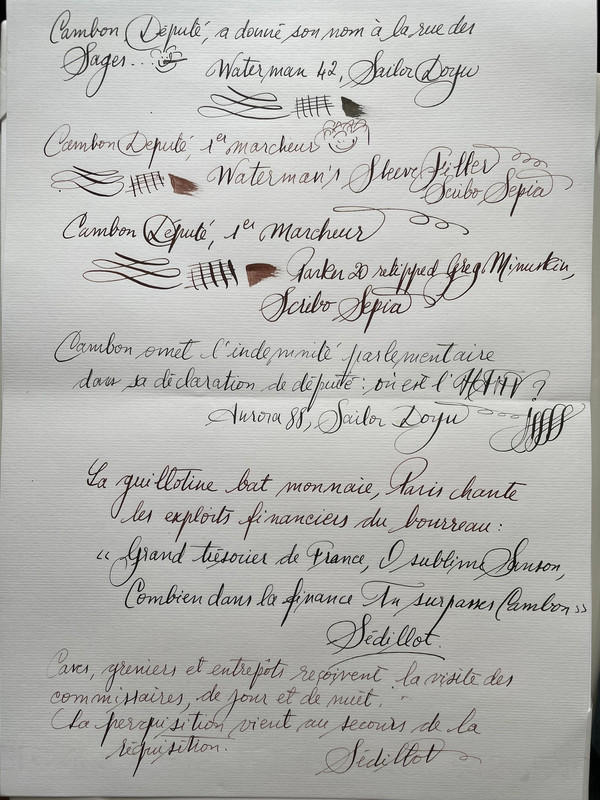 Cambon Député, a donné son nom à la rue des
Sages...
Waterman 42, Sailor Doyu
Cambon Deputé, 1er marcheur
Waterman's Sleeve Filler
Scribo Sepia
Cambon Député, 1er Marcheur
Parker 20 retipped Greg Minuskin,
Scribo Sepia
Cambon omet l'indemnité parlementaire
dans sa déclaration de député : où est l'HATV ?
Aurora 88, Sailor Doyu
La guillotine bat monnaie, Paris chante
les exploits financiers du bourreau :
“ Grand trésorier de France, O sublime Sanson,
Combien dans la finance Tu surpasses Cambon ”
Sédillot.
Caves, greniers et entrepôts reçoivent la visite des
commissaires, de jour et de nuit.
La perquisition vient au secours de la
réquisition.
Sédillot